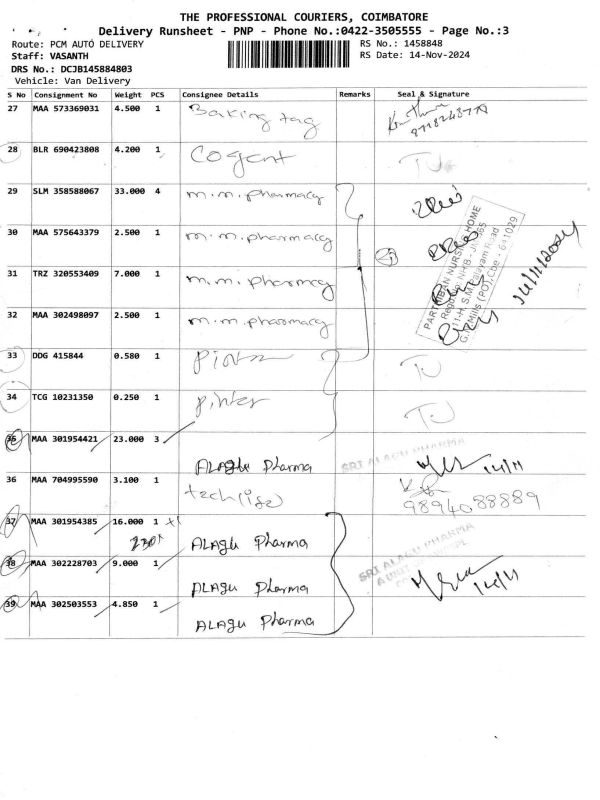 THE PROFESSIONAL COURIERS, COIMBATORE
Delivery Runsheet - PNP - Phone No.:0422-3505555 - Page No.:3
Route: PCM AUTO DELIVERY
RS No.: 1458848
Staff: VASANTH
RS Date: 14-Nov-2024
DRS No.: DCJB145884803
Vehicle: Van Delivery
S No Consignment No Weight PCS Consignee Details Remarks Seal & Signature
27 MAA 573369031 4.500 1 Baking tag
28 BLR 690423808 4.200 1 Cogent TJ
29 SLM 358588067 33.000 4 m.m. pharmacy
30 MAA 575643379 2.500 1 m.m. pharmacy
31 TRZ 320553409 7.000 1 m.m. pharmacy
32 MAA 302498097 2.500 1 m.m. pharmacy
PARTHIBAN NURSING HOME
14/11/2024
33 DDG 415844 0.580 1 TJ
34 TCG 10231350 0.250 1 TJ
35 MAA 301954421 23.000 3 ALAGU Pharma
SRI ALAGU PHARMA
14/11
36 MAA 704995590 3.100 1 tech
9894088889
37 MAA 301954385 16.000 1 ALAGU Pharma
38 MAA 302228703 9.000 1 ALAGU Pharma
SRI ALAGU PHARMA
14/11
39 MAA 302503553 4.850 1 ALAGU Pharma